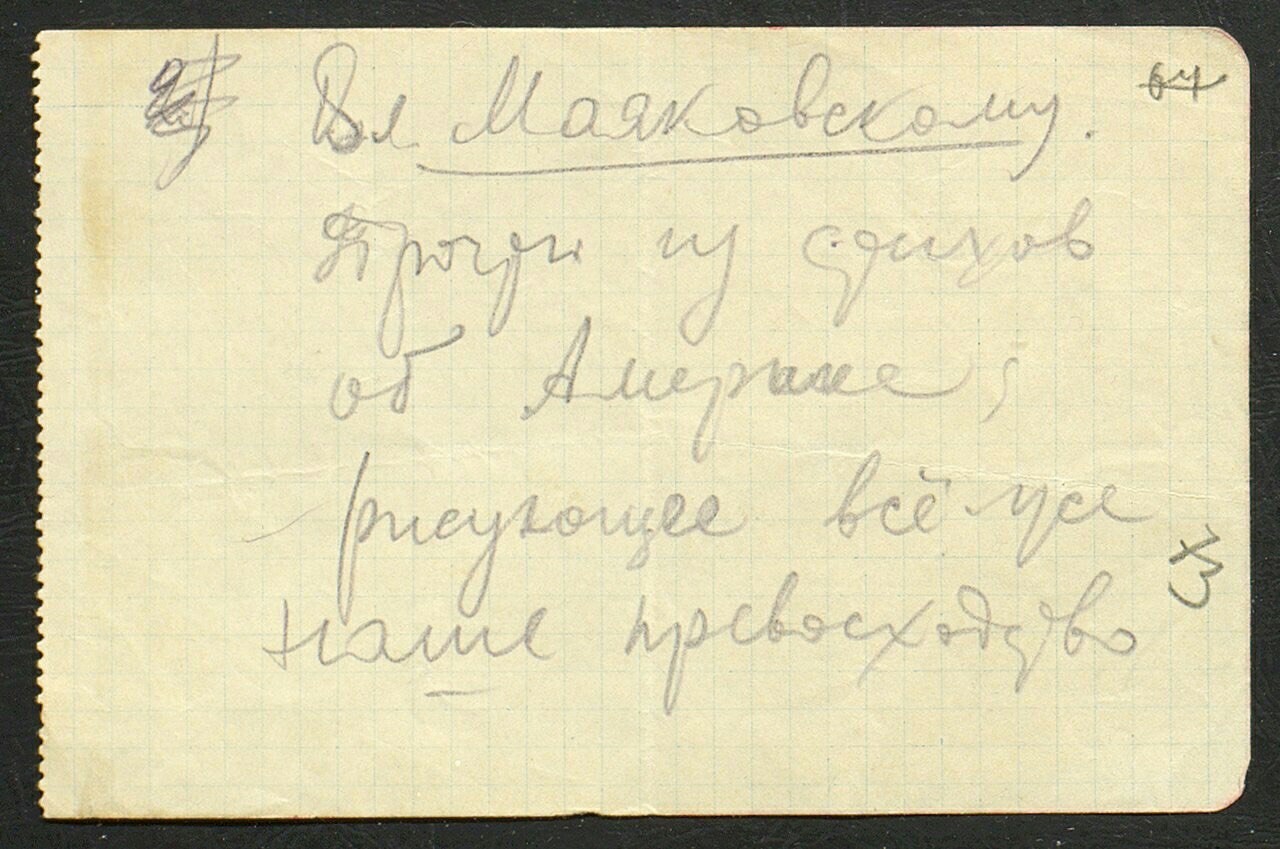 Вл Маяковскому.
67
Прочти из стихов
об Америке,
рисующее всё же
наше превосходство